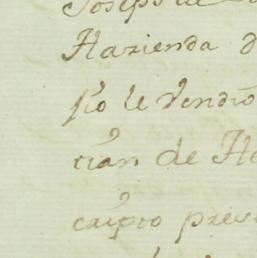 Joseph de
Hazienda d
sio le vendio
cian de He
cripto pres